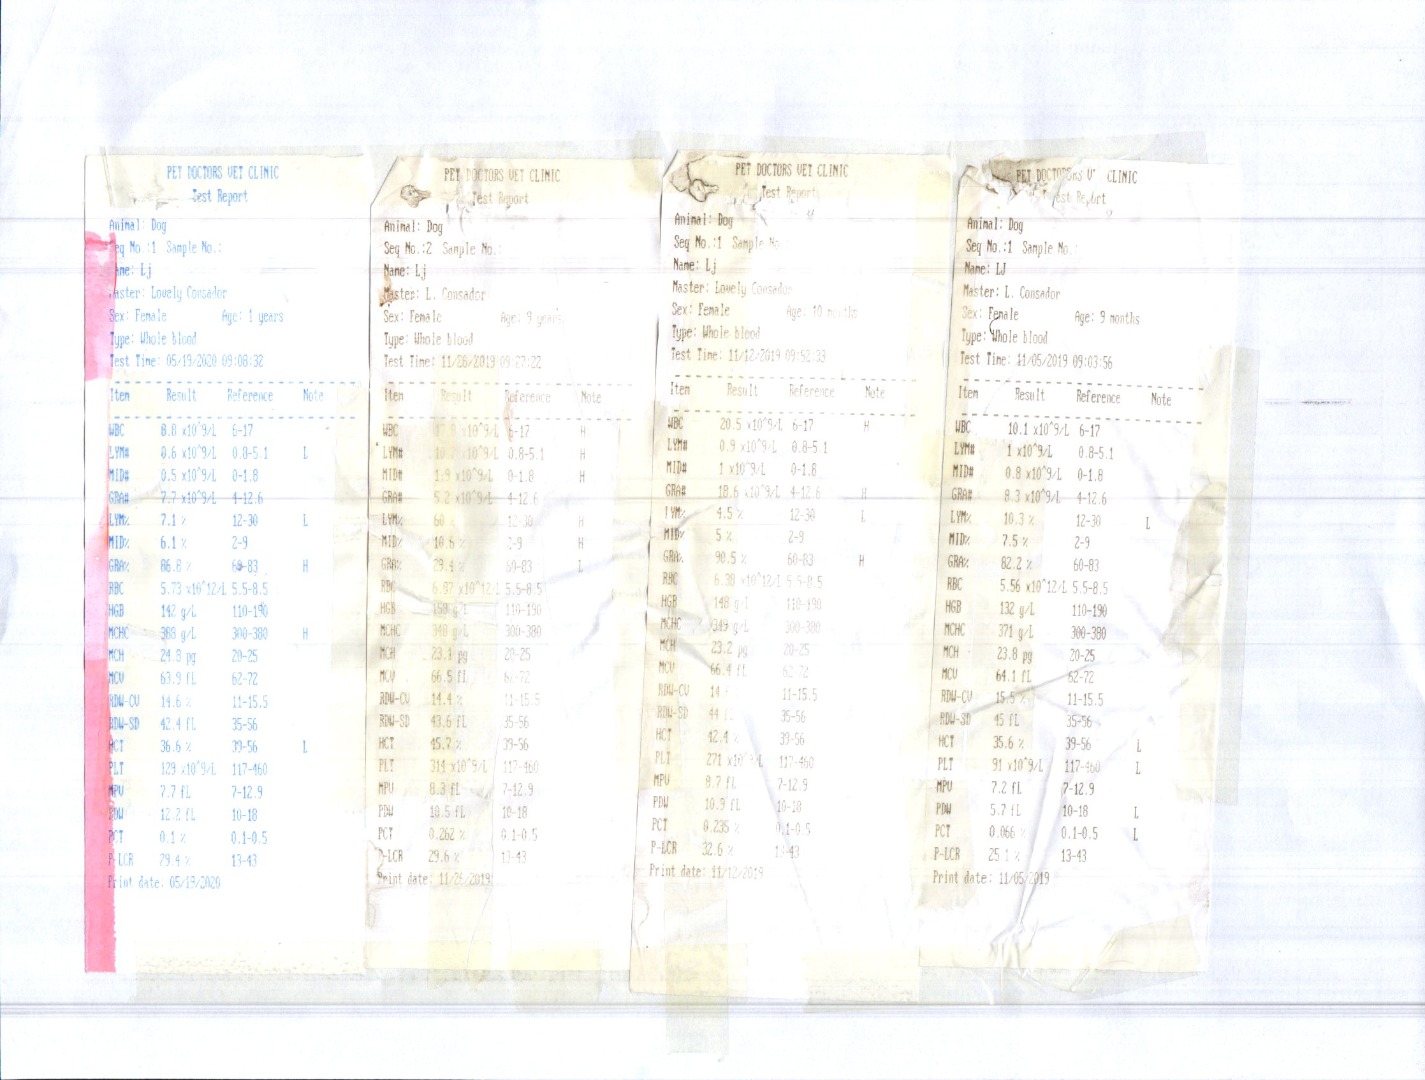 PET DOCTORS VET CLINIC
Test Report
Animal: Dog
Seq No.:1 Sample No.:
Name: Lj
Master: Lovely Consador
Sex: Female Age: 1 years
Type: Whole blood
Test Time: 05/19/2020 09:08:32
Item Result Reference Note
WBC 8.8 x10^9/L 6-17
LYM# 0.6 x10^9/L 0.8-5.1 L
MID# 0.5 x10^9/L 0-1.8
GRA# 7.7 x10^9/L 4-12.6
LYM% 7.1 % 12-30 L
MID% 6.1 % 2-9
GRA% 86.8 % 60-83 H
RBC 5.73 x10^12/L 5.5-8.5
HGB 142 g/L 110-190
MCHC 388 g/L 300-380 H
MCH 24.8 pg 20-25
MCV 63.9 fL 62-72
RDW-CV 14.6 % 11-15.5
RDW-SD 42.4 fL 35-56
HCT 36.6 % 39-56 L
PLT 129 x10^9/L 117-460
MPV 7.7 fL 7-12.9
PDW 12.2 fL 10-18
PCT 0.1 % 0.1-0.5
P-LCR 29.4 % 13-43
Print date: 05/19/2020
PET DOCTORS VET CLINIC
Test Report
Animal: Dog
Seq No.:2 Sample No.:
Name: Lj
Master: L. Consador
Sex: Female Age: 9 years
Type: Whole blood
Test Time: 11/26/2019 09:27:22
Item Result Reference Note
WBC x10^9/L 6-17 H
LYM# x10^9/L 0.8-5.1 H
MID# 1.9 x10^9/L 0-1.8 H
GRA# 5.2 x10^9/L 4-12.6
LYM% 60 % 12-30 H
MID% 10.6 % 2-9 H
GRA% 29.4 % 60-83 L
RBC 6.87 x10^12/L 5.5-8.5
HGB g/L 110-190
MCHC 348 g/L 300-380
MCH 23.1 pg 20-25
MCV 66.5 fL 62-72
RDW-CV 14.4 % 11-15.5
RDW-SD 43.6 fL 35-56
HCT 45.7 % 39-56
PLT 314 x10^9/L 117-460
MPV 8.3 fL 7-12.9
PDW 10.5 fL 10-18
PCT 0.262 % 0.1-0.5
P-LCR 29.6 % 13-43
Print date: 11/26/2019
PET DOCTORS VET CLINIC
Test Report
Animal: Dog
Seq No.:1 Sample No
Name: Lj
Master: Lovely Consador
Sex: Female Age: 10 months
Type: Whole blood
Test Time: 11/12/2019 09:52:33
Item Result Reference Note
WBC 20.5 x10^9/L 6-17 H
LYM# 0.9 x10^9/L 0.8-5.1
MID# 1 x10^9/L 0-1.8
GRA# 18.6 x10^9/L 4-12.6 H
LYM% 4.5 % 12-30 L
MID% 5 % 2-9
GRA% 90.5 % 60-83 H
RBC 6.38 x10^12/L 5.5-8.5
HGB 148 g/L 110-190
MCHC 349 g/L 300-380
MCH 23.2 pg 20-25
MCV 66.4 fL 62-72
RDW-CV 11-15.5
RDW-SD 44 fL 35-56
HCT 42.4 % 39-56
PLT 271 x10^9/L 117-460
MPV 8.7 fL 7-12.9
PDW 10.9 fL 10-18
PCT 0.235 % 0.1-0.5
P-LCR 32.6 % 13-43
Print date: 11/12/2019
PET DOCTORS CLINIC
Test Report
Animal: Dog
Seq No.:1 Sample No.:
Name: LJ
Master: L. Consador
Sex: Female Age: 9 months
Type: Whole blood
Test Time: 11/05/2019 09:03:56
Item Result Reference Note
WBC 10.1 x10^9/L 6-17
LYM# 1 x10^9/L 0.8-5.1
MID# 0.8 x10^9/L 0-1.8
GRA# 8.3 x10^9/L 4-12.6
LYM% 10.3 % 12-30 L
MID% 7.5 % 2-9
GRA% 82.2 % 60-83
RBC 5.56 x10^12/L 5.5-8.5
HGB 132 g/L 110-190
MCHC 371 g/L 300-380
MCH 23.8 pg 20-25
MCV 64.1 fL 62-72
RDW-CV 15.5 % 11-15.5
RDW-SD 45 fL 35-56
HCT 35.6 % 39-56 L
PLT 91 x10^9/L 117-460 L
MPV 7.2 fL 7-12.9
PDW 5.7 fL 10-18 L
PCT 0.066 % 0.1-0.5 L
P-LCR 25.1 % 13-43
Print date: 11/05/2019